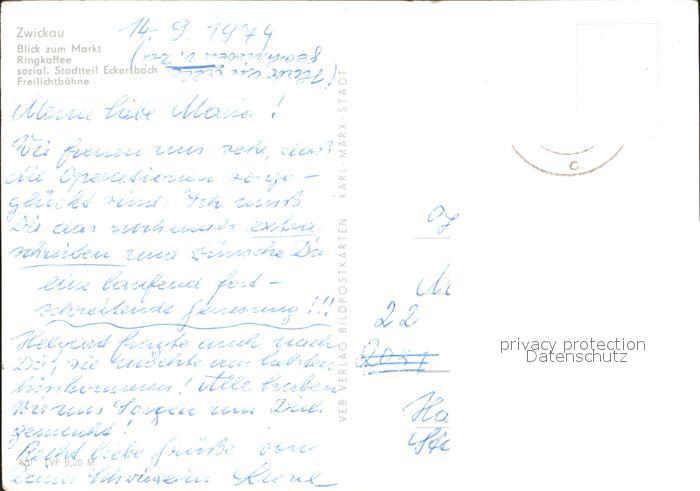 Zwickau
Blick zum Markt
Ringkaffee
sozial. Stadtteil Eckersbach
Freilichtbühne
14. 9. 1974
Meine liebe Maria!
Wir freuen uns sehr, daß
die Operationen so ge-
glückt sind. Ich muß
Dir das nochmals extra
schreiben und wünsche Dir
eine laufend fort-
schreitende Genesung!!!
Helga fragte auch nach
Dir, sie möchte am liebsten
hinkommen! Alle haben
wir uns Sorgen um Dich
gemacht!
Recht liebe Grüße von
Deiner Schwägerin
807 EVP 0,20 M
VEB VERLAG BILDPOSTKARTEN KARL-MARX-STADT
C
22
Ha
privacy protection
Datenschutz